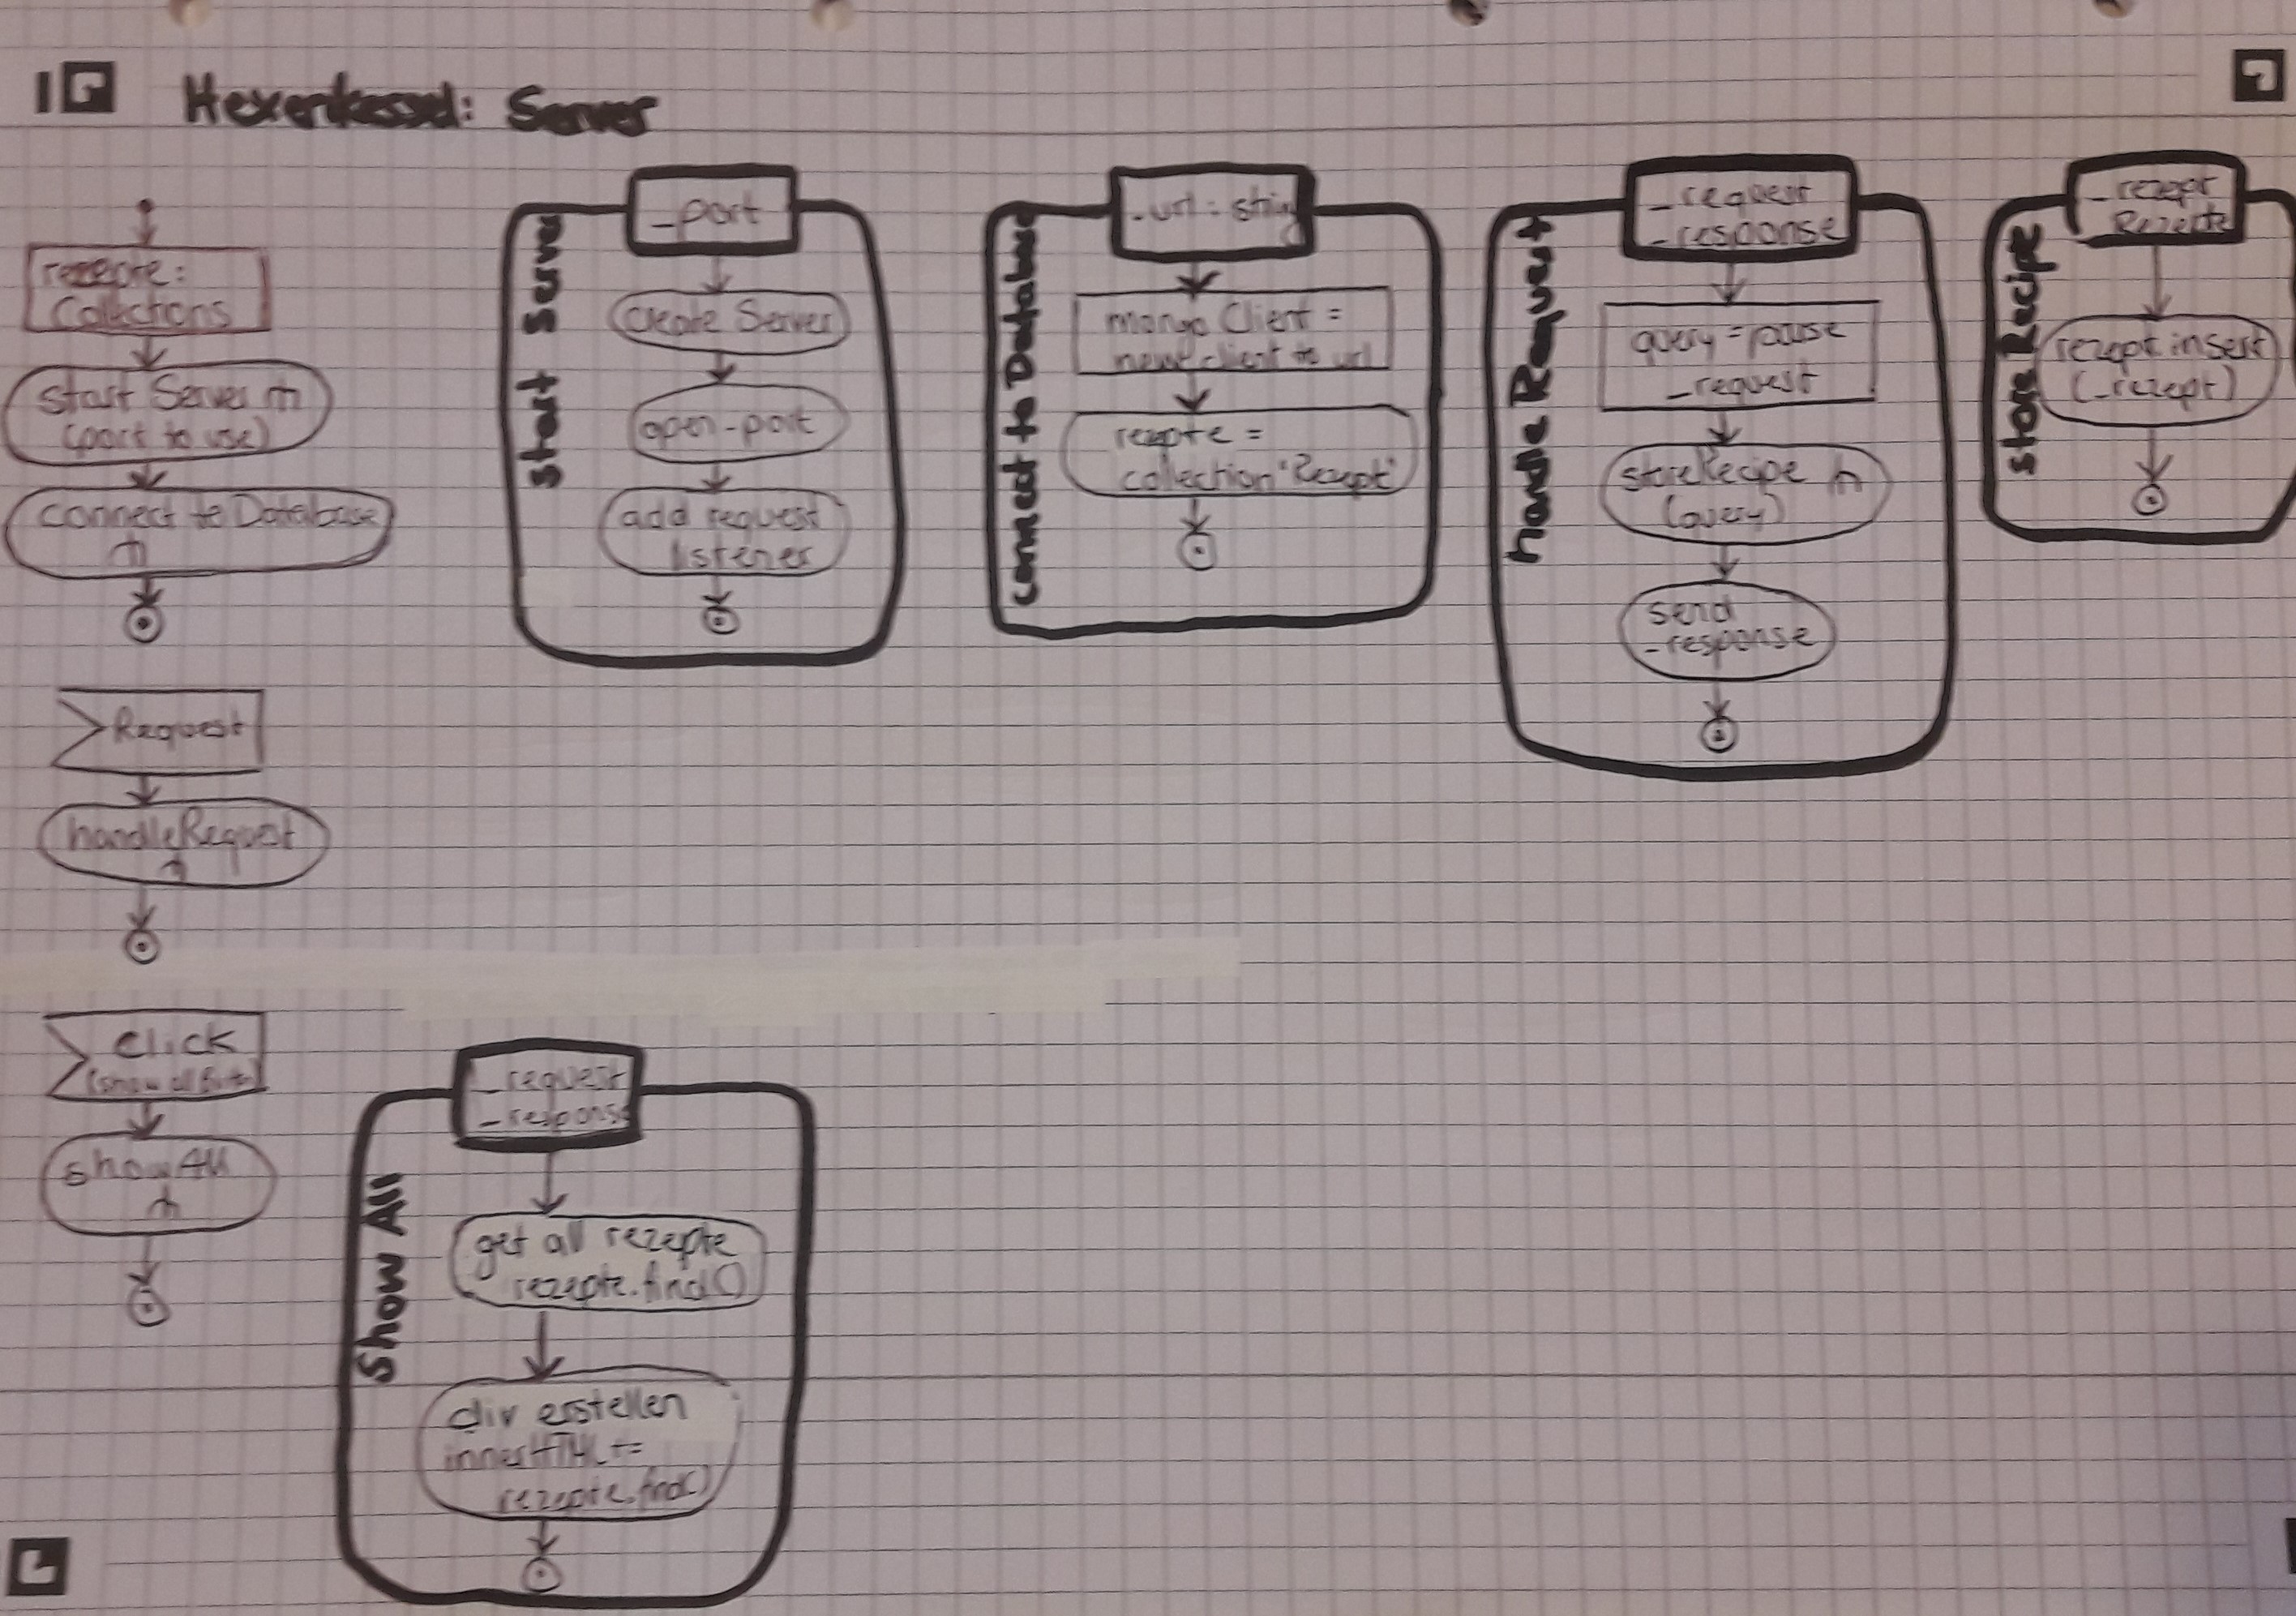 Hexenkessel: Server
rezepte:
Collections
start Server
(port to use)
connect to Database
Request
handleRequest
Start Server
_port
create Server
open-port
add request
listener
connect to Database
_url: string
mongo Client =
new client to url
rezepte =
collection 'Rezept'
handle Request
_request
_response
query = pause
_request
storeRecipe
(query)
send
_response
store Recipe
_rezept
Rezepte
rezept.insert
(_rezept)
Click
(show all
showAll
Show All
_request
_response
get all rezepte
rezepte.find()
div erstellen
innerHTML +=
rezepte.find()